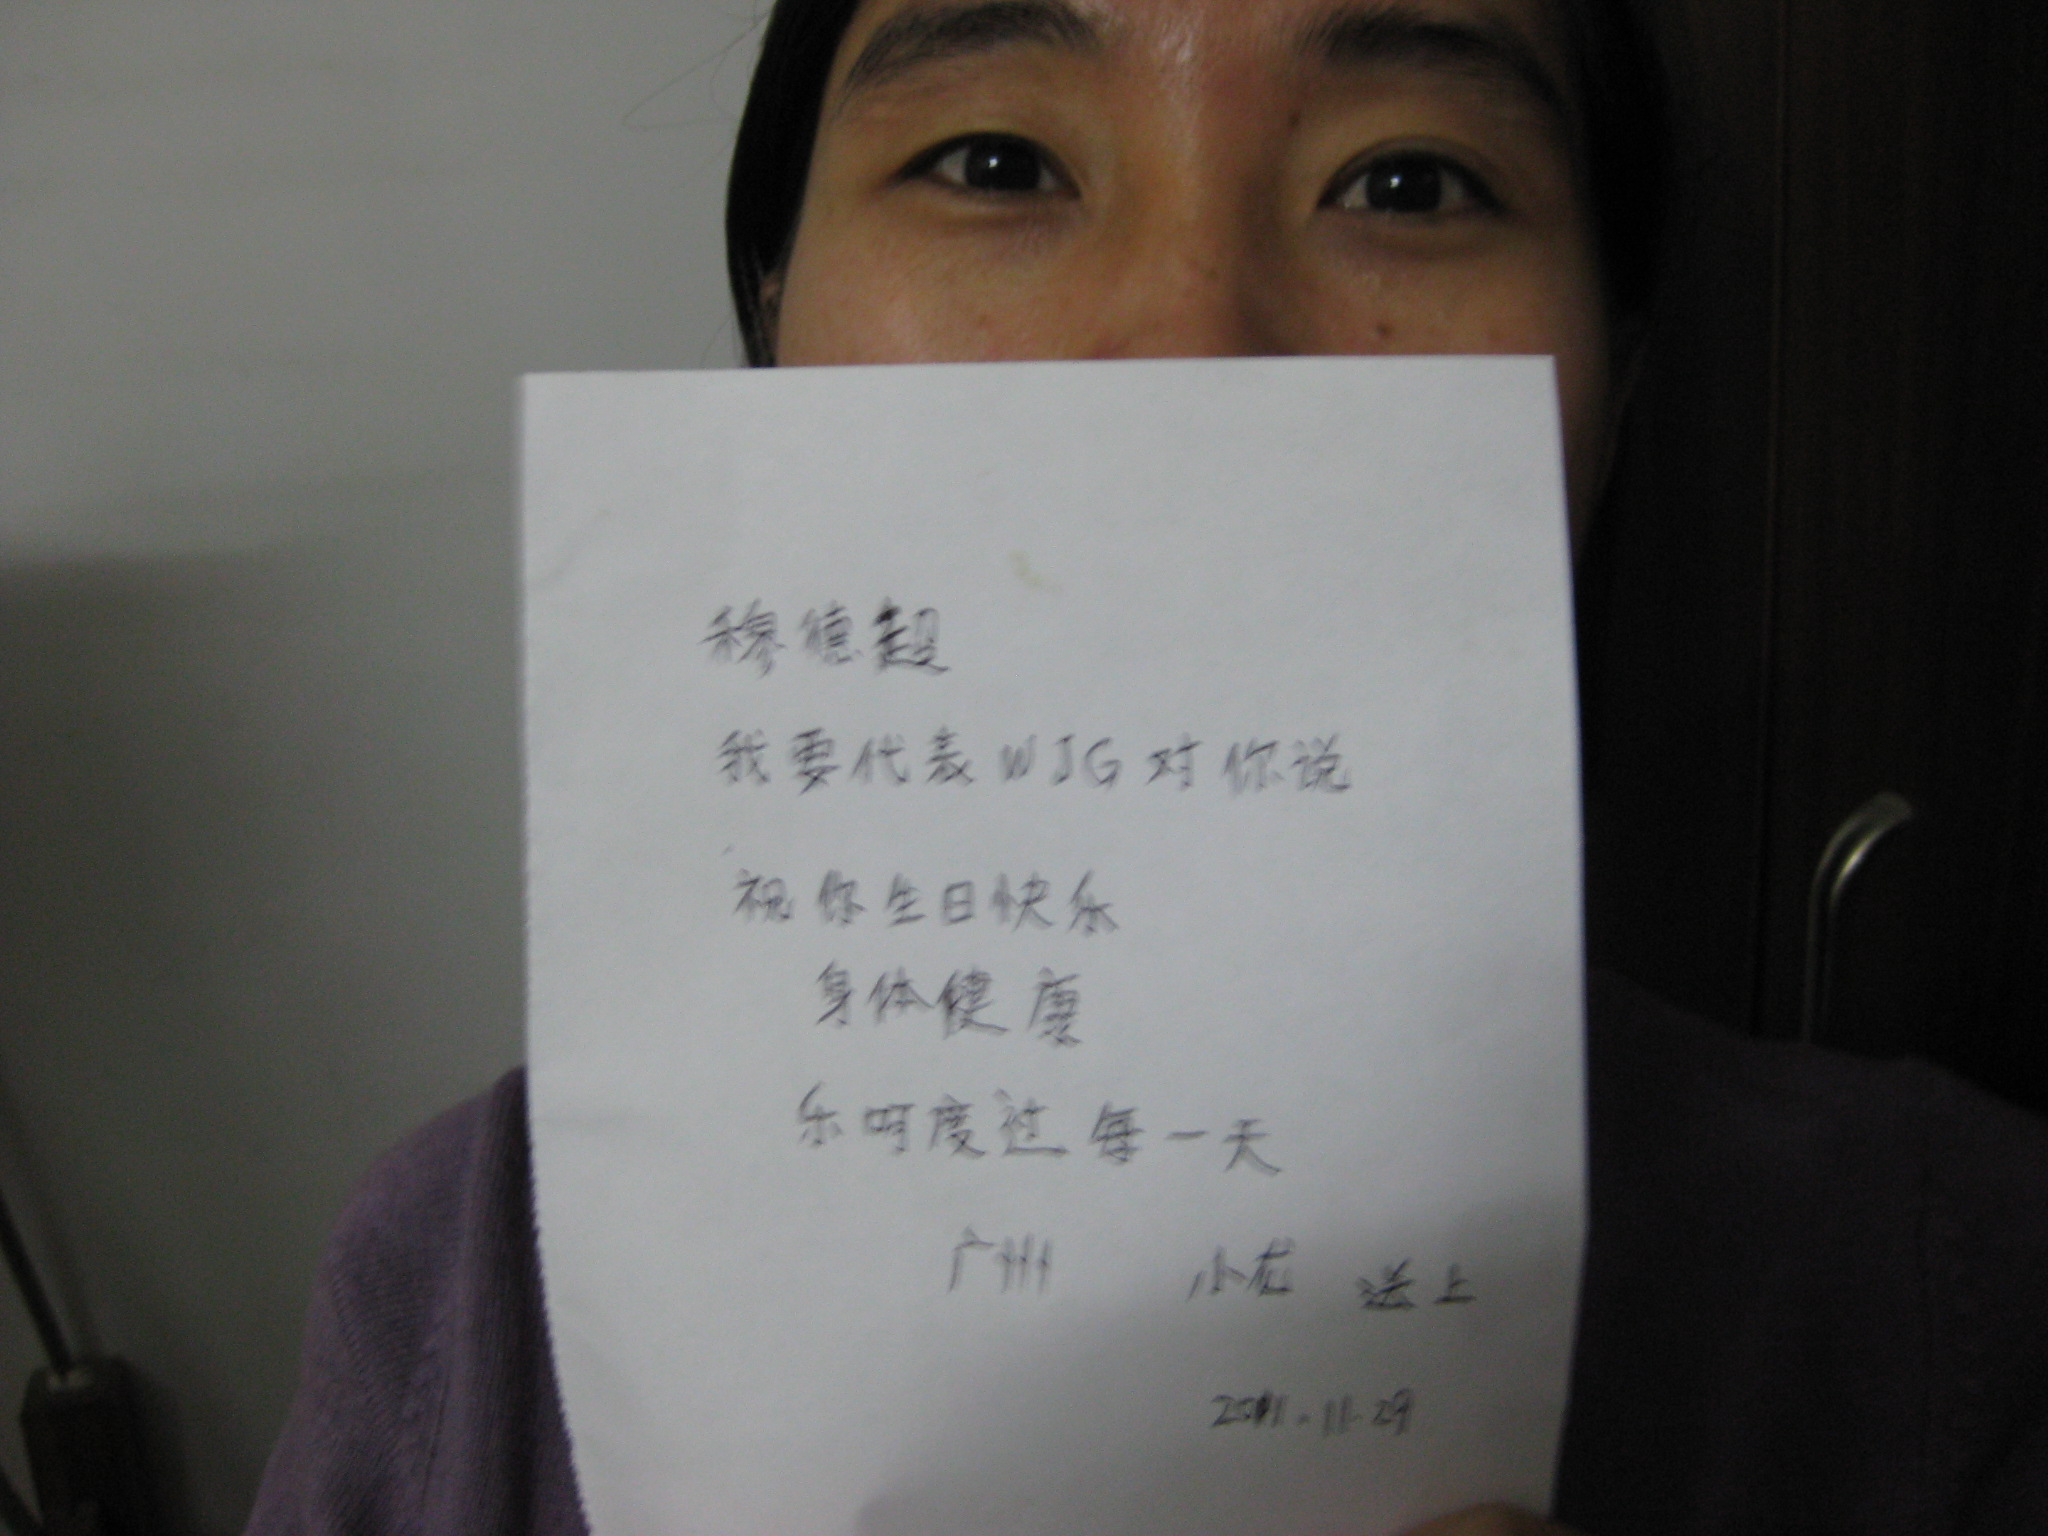 穆德超
我要代表WJG对你说
祝你生日快乐
身体健康
乐呵度过每一天
广州 小龙 送上
2011.11.29